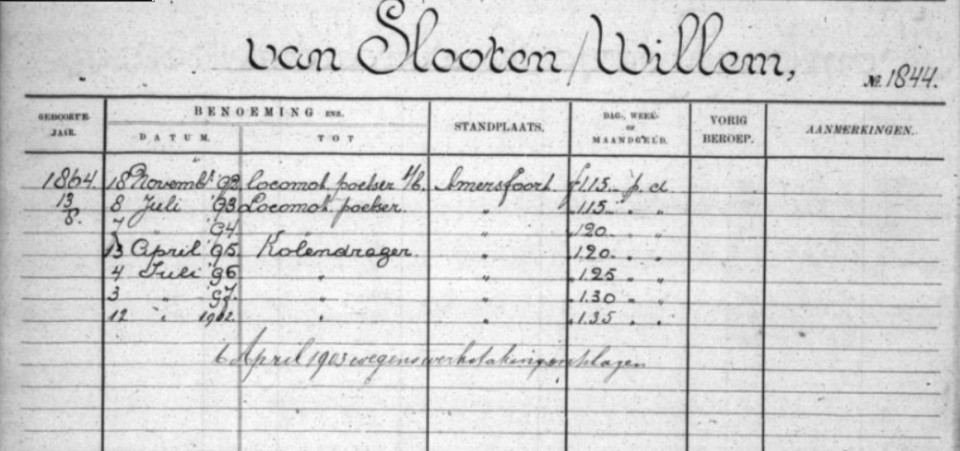 van Slooten, Willem, No. 1844.
GEBOORTE- JAAR. BENOEMING ENZ. STANDPLAATS. DAG-, WEEK- OF MAANDGELD. VORIG BEROEP. AANMERKINGEN.
DATUM. TOT
1864. 18 Novemb. '92. Locomot. poetser t/b. Amersfoort. f 1.15 p. d.
13/8. 8 Juli '93 Locomot. poetser. " " 1.15 " "
7 " '94 " " 1.20 " "
13 April '95. Kolendrager. " " 1.20 " "
4 Juli '96 " " " 1.25 " "
3 " '97. " " " 1.30 " "
12 " 1902. " " " 1.35 " "
6 April 1903 wegens werkstaking ontslagen